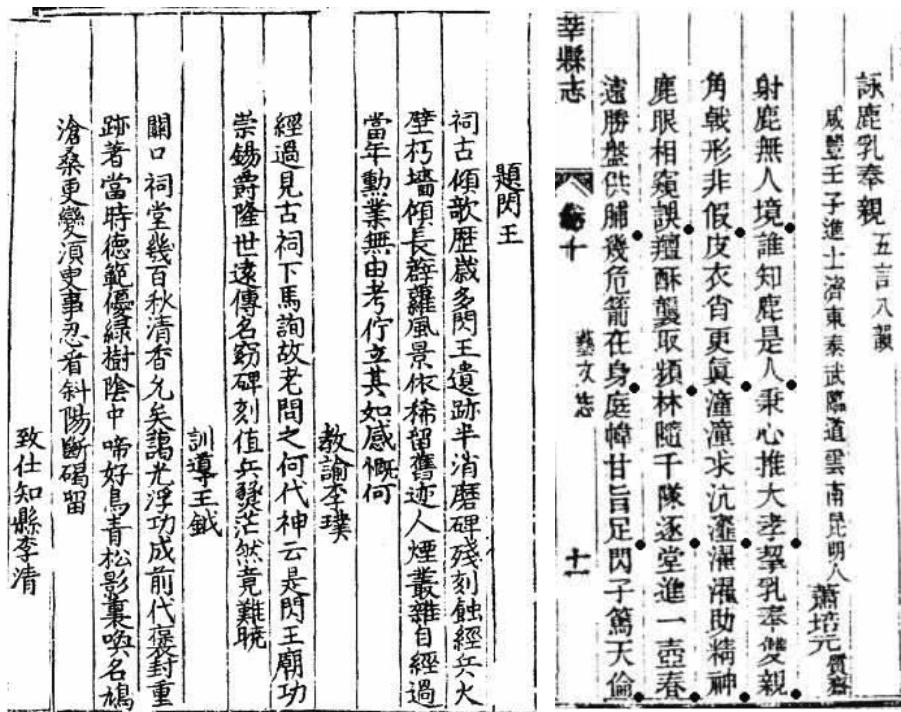 詠鹿乳奉親 五言八韻
咸豐壬子進士濟東泰武臨道雲南昆明人 蕭培元 質齋
射鹿無人境誰知鹿是人秉心推大孝挐乳奉雙親
角戟形非假皮衣省更眞潼潼求沆瀣濯濯助精神
鹿眼相窺誤羶酥襲取頻林隨千隊逐堂進一壺春
遠勝盤供脯幾危箭在身庭幃甘旨足閃子篤天倫
莘縣志 卷十 藝文志 十一
題閃王
祠古傾欹歷歲多閃王遺跡半消磨碑殘刻蝕經兵火
壁朽墻傾長薜蘿風景依稀留舊迹人煙叢雜自經過
當年勳業無由考佇立其如感慨何
教諭李璞
經過見古祠下馬詢故老問之何代神云是閃王廟功
崇錫爵隆世遠傳名窈碑刻值兵燹茫然竟難曉
訓導王鉞
關口祠堂幾百秋清香允矣藹光浮功成前代褒封重
跡著當時德範優綠樹陰中啼好鳥青松影裏喚名鳩
滄桑更變須臾事忍看斜陽斷碣留
致仕知縣李清